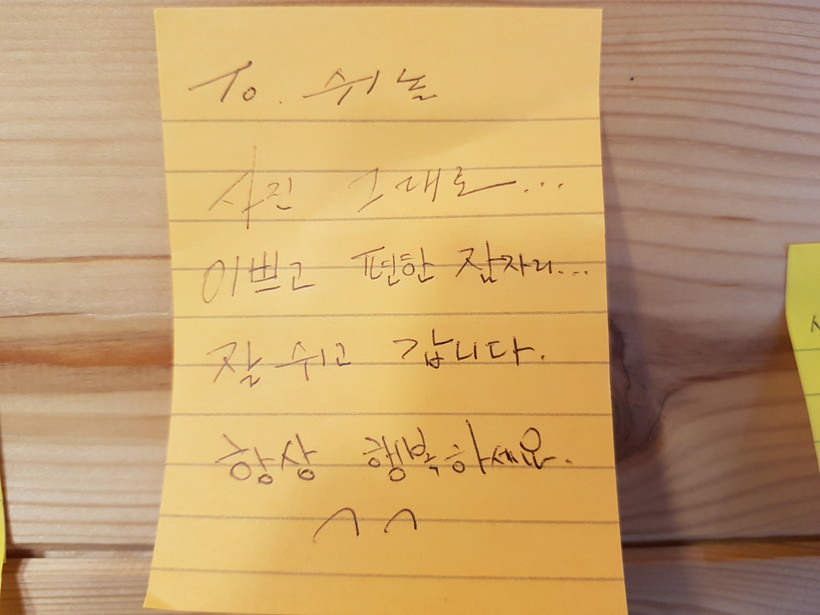 To. 쉬놀
사진 그대로...
이쁘고 편한 잠자리...
잘 쉬고 갑니다.
항상 행복하세요.
^ ^